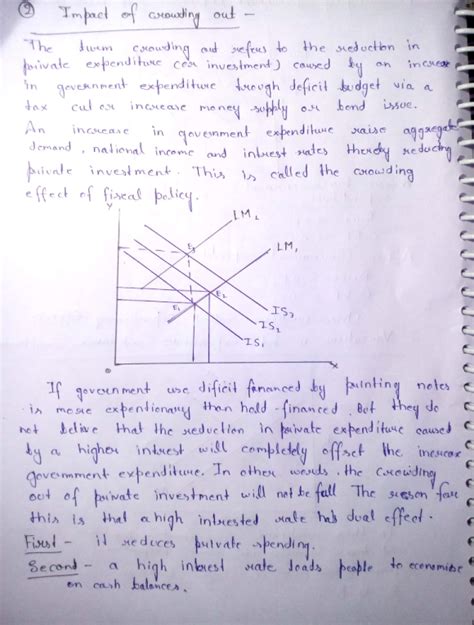 ② Impact of crowding out –
The turm crowding out refers to the reduction in
private expenditure (or investment) caused by an increase
in government expenditure trough deficit budget via a
tax cut or increase money supply or bond issue.
An increase in government expenditure raise aggregate
demand, national income and intrest rates thereby reducing
private investment. This is called the crowding
effect of fiscal policy.
Y
LM₂
LM₁
E₃
E₂
E₁
IS₃
IS₂
IS₁
O
X
If government use dificit fananced by printing notes
is more expentionary than hald-financed. But they do
not belive that the reduction in private expenditure caused
by a higher intrest will completely offset the increase
government expenditure. In other words, the crowding
out of private investment will not be full The reson for
this is that a high intrested rate has dual effect.
First – it reduces private spending.
Second – a high intrest rate leads people to economise
on cash balances.